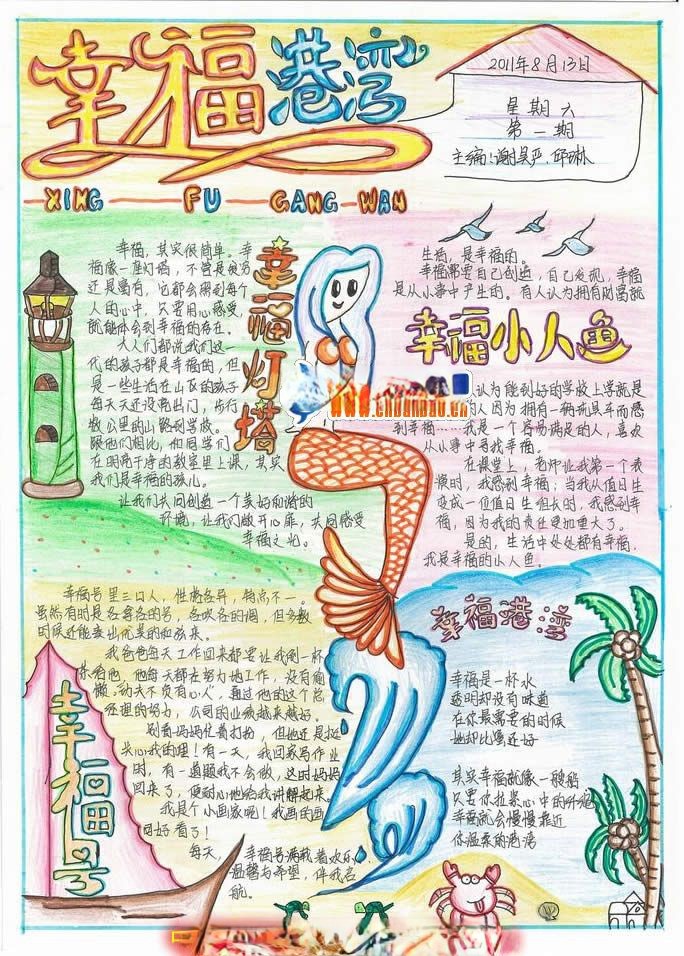 幸福港湾
XING FU GANG WAN
2011年8月13日
星期六
第一期
主编:谢昊严、邱琳
幸福灯塔
幸福,其实很简单。幸
福像一座灯塔,不管是贫穷
还是富有,它都会照到每个
人的心中,只要用心感受,
就能体会到幸福的存在。
大人们都说我们这一
代的孩子都是幸福的,但
是一些生活在山区的孩子
每天天还没亮出门,步行
数公里的山路到学校。
跟他们相比,和同学们
在明亮干净的教室里上课,其实
我们是幸福的孩儿。
让我们共同创造一个美好和谐的
环境,让我们敞开心扉,共同感受
幸福之光。
生活,是幸福的。
幸福需要自己创造,自己发现,幸福
是从小事中产生的。有人认为拥有财富就
幸福小人鱼
认为能到好的学校上学就是
的人因为拥有一辆玩具车而感
到幸福……我是一个容易满足的人,喜欢
从小事中寻找幸福。
在课堂上,老师让我第一个表
演时,我感到幸福;当我从值日生
变成一位值日生组长时,我感到幸
福,因为我的责任更加重大了。
是的,生活中处处都有幸福,
我是幸福的小人鱼。
www.chuanbao.cn
幸福号
幸福号里三口人,性格各异,特点不一。
虽然有时是各拿各的号,各吹各的调,但多数
时候还能奏出优美的和弦来。
我爸爸每天工作回来都要让我倒一杯
茶给他,他每天都在努力地工作,没有偷
懒,功夫不负有心人,通过他的这个总
经理的努力,公司的业绩越来越好。
别看妈妈忙着打扮,但她还是挺
关心我的哩!有一天,我回家写作业
时,有一道题我不会做,这时妈妈
回来了,便耐心地给我讲解起来。
我是个小画家呢!我画的画
可好看了!
每天,幸福号满载着欢乐、
温馨与希望,伴我启
航。
幸福港湾
幸福是一杯水
透明却没有味道
在你最需要的时候
她却比蜜还好
其实幸福就像一艘船
只要你拉紧心中的纤绳
幸福就会慢慢靠近
你温柔的港湾